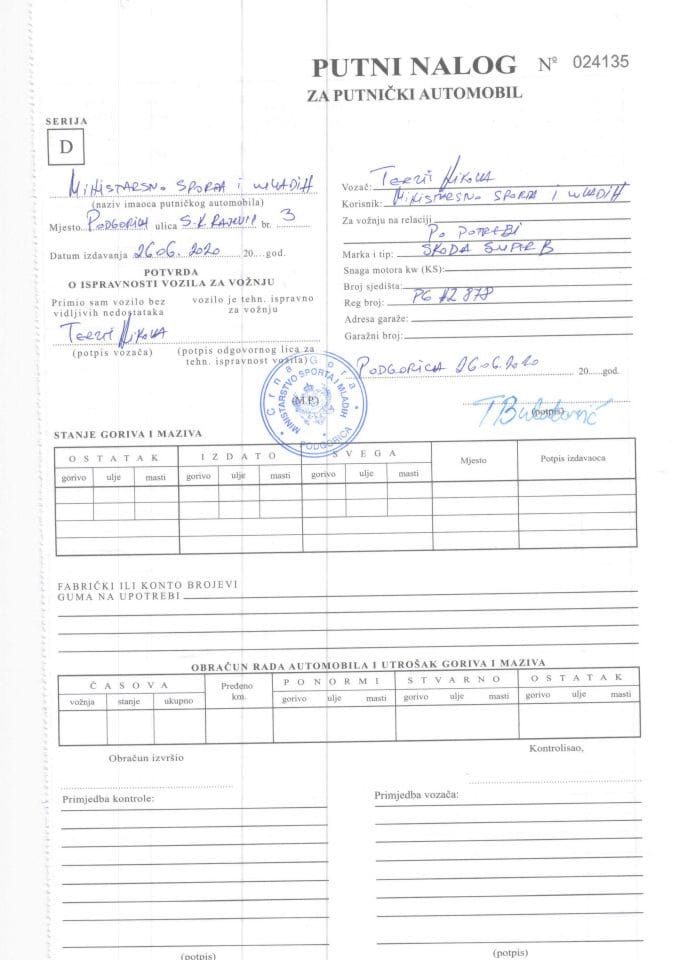 PUTNI NALOG Nº 024135
ZA PUTNIČKI AUTOMOBIL
SERIJA
D
MINISTARSTVO SPORTA I MLADIH
(naziv imaoca putničkog automobila)
Mjesto PODGORICA ulica S. K RADEVIĆ br. 3
Datum izdavanja 26.06. 2020 20....god.
POTVRDA
O ISPRAVNOSTI VOZILA ZA VOŽNJU
Primio sam vozilo bez vidljivih nedostataka
vozilo je tehn. ispravno za vožnju
TERZIĆ NIKOLA
(potpis vozača)
(potpis odgovornog lica za tehn. ispravnost vozila)
Vozač: TERZIĆ NIKOLA
Korisnik: MINISTARSTVO SPORTA I MLADIH
Za vožnju na relaciji
PO POTREBI
Marka i tip: ŠKODA SUPER B
Snaga motora kw (KS):
Broj sjedišta:
Reg broj: PG 878
Adresa garaže:
Garažni broj:
PODGORICA 26.06.2020 20.....god.
(potpis)
Crna Gora
MINISTARSTVO SPORTA I MLADIH
(M.P.)
PODGORICA
STANJE GORIVA I MAZIVA
OSTATAK IZDATO SVEGA Mjesto Potpis izdavaoca
gorivo ulje masti gorivo ulje masti gorivo ulje masti
FABRIČKI ILI KONTO BROJEVI
GUMA NA UPOTREBI
OBRAČUN RADA AUTOMOBILA I UTROŠAK GORIVA I MAZIVA
ČASOVA Pređeno km. PO NORMI STVARNO OSTATAK
vožnja stanje ukupno gorivo ulje masti gorivo ulje masti gorivo ulje masti
Obračun izvršio
Kontrolisao,
Primjedba kontrole:
Primjedba vozača:
(potpis)
(potpis)